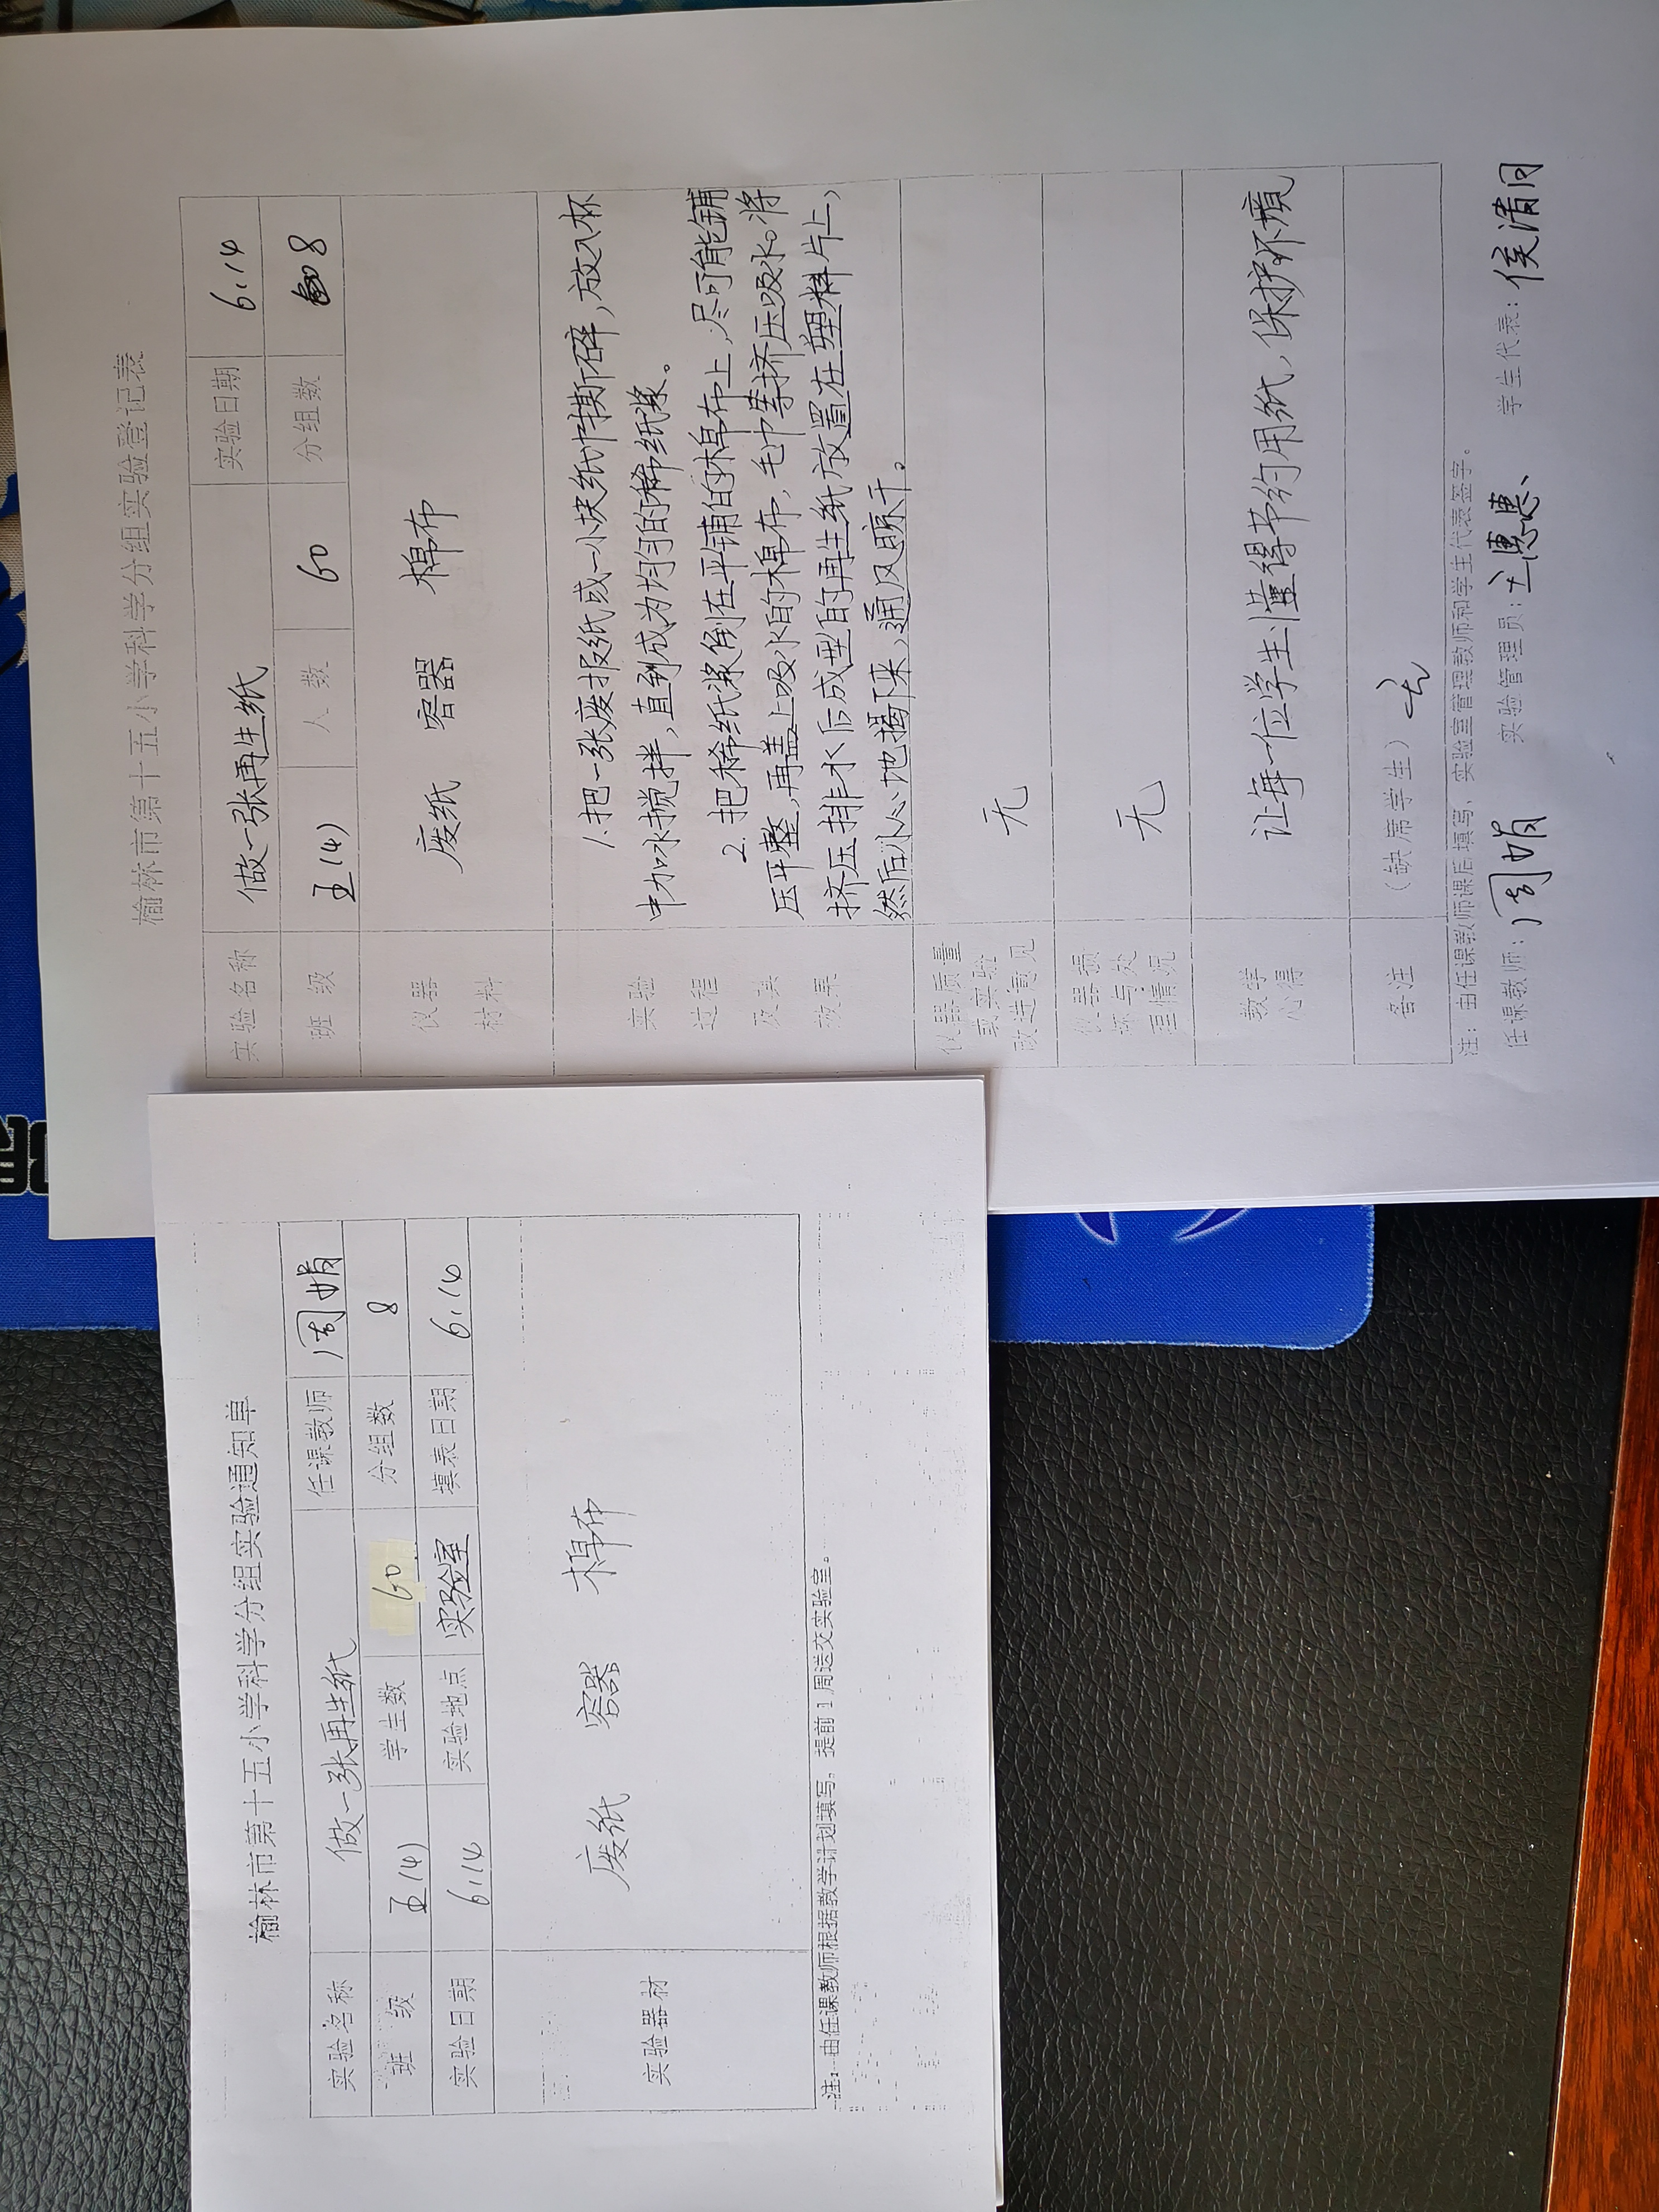 榆林市第十五小学科学分组实验通知单
实验名称 做一张再生纸 任课教师 周娟
班 级 五(4) 学生数 60 分组数 8
实验日期 6.14 实验地点 实验室 填表日期 6.14
实验器材 废纸 容器 棉布
注：由任课教师根据教学计划填写，提前1周送交实验室。
榆林市第十五小学科学分组实验登记表
实验名称 做一张再生纸 实验日期 6.14
班 级 五(4) 人 数 60 分组数 8
仪器
材料
废纸 容器 棉布
实验
过程
及其
效果
1.把一张废报纸或一小块纸巾撕碎，放入杯
中加水搅拌，直到成为均匀的稀纸浆。
2.把稀纸浆倒在平铺的棉布上，尽可能铺
压平整，再盖上吸水的棉布，毛巾等挤压吸水。将
挤压排水后成型的再生纸放置在塑料片上，
然后小心地揭下来，通风晾干。
仪器质量
或实验
改进意见
无
仪器损
坏与处
理情况
无
教学
心得
让每一位学生懂得节约用纸，保护环境
备注 （缺席学生）无
注：由任课教师课后填写，实验室管理教师和学生代表签字。
任课教师：周娟 实验管理员： 学生代表：侯清